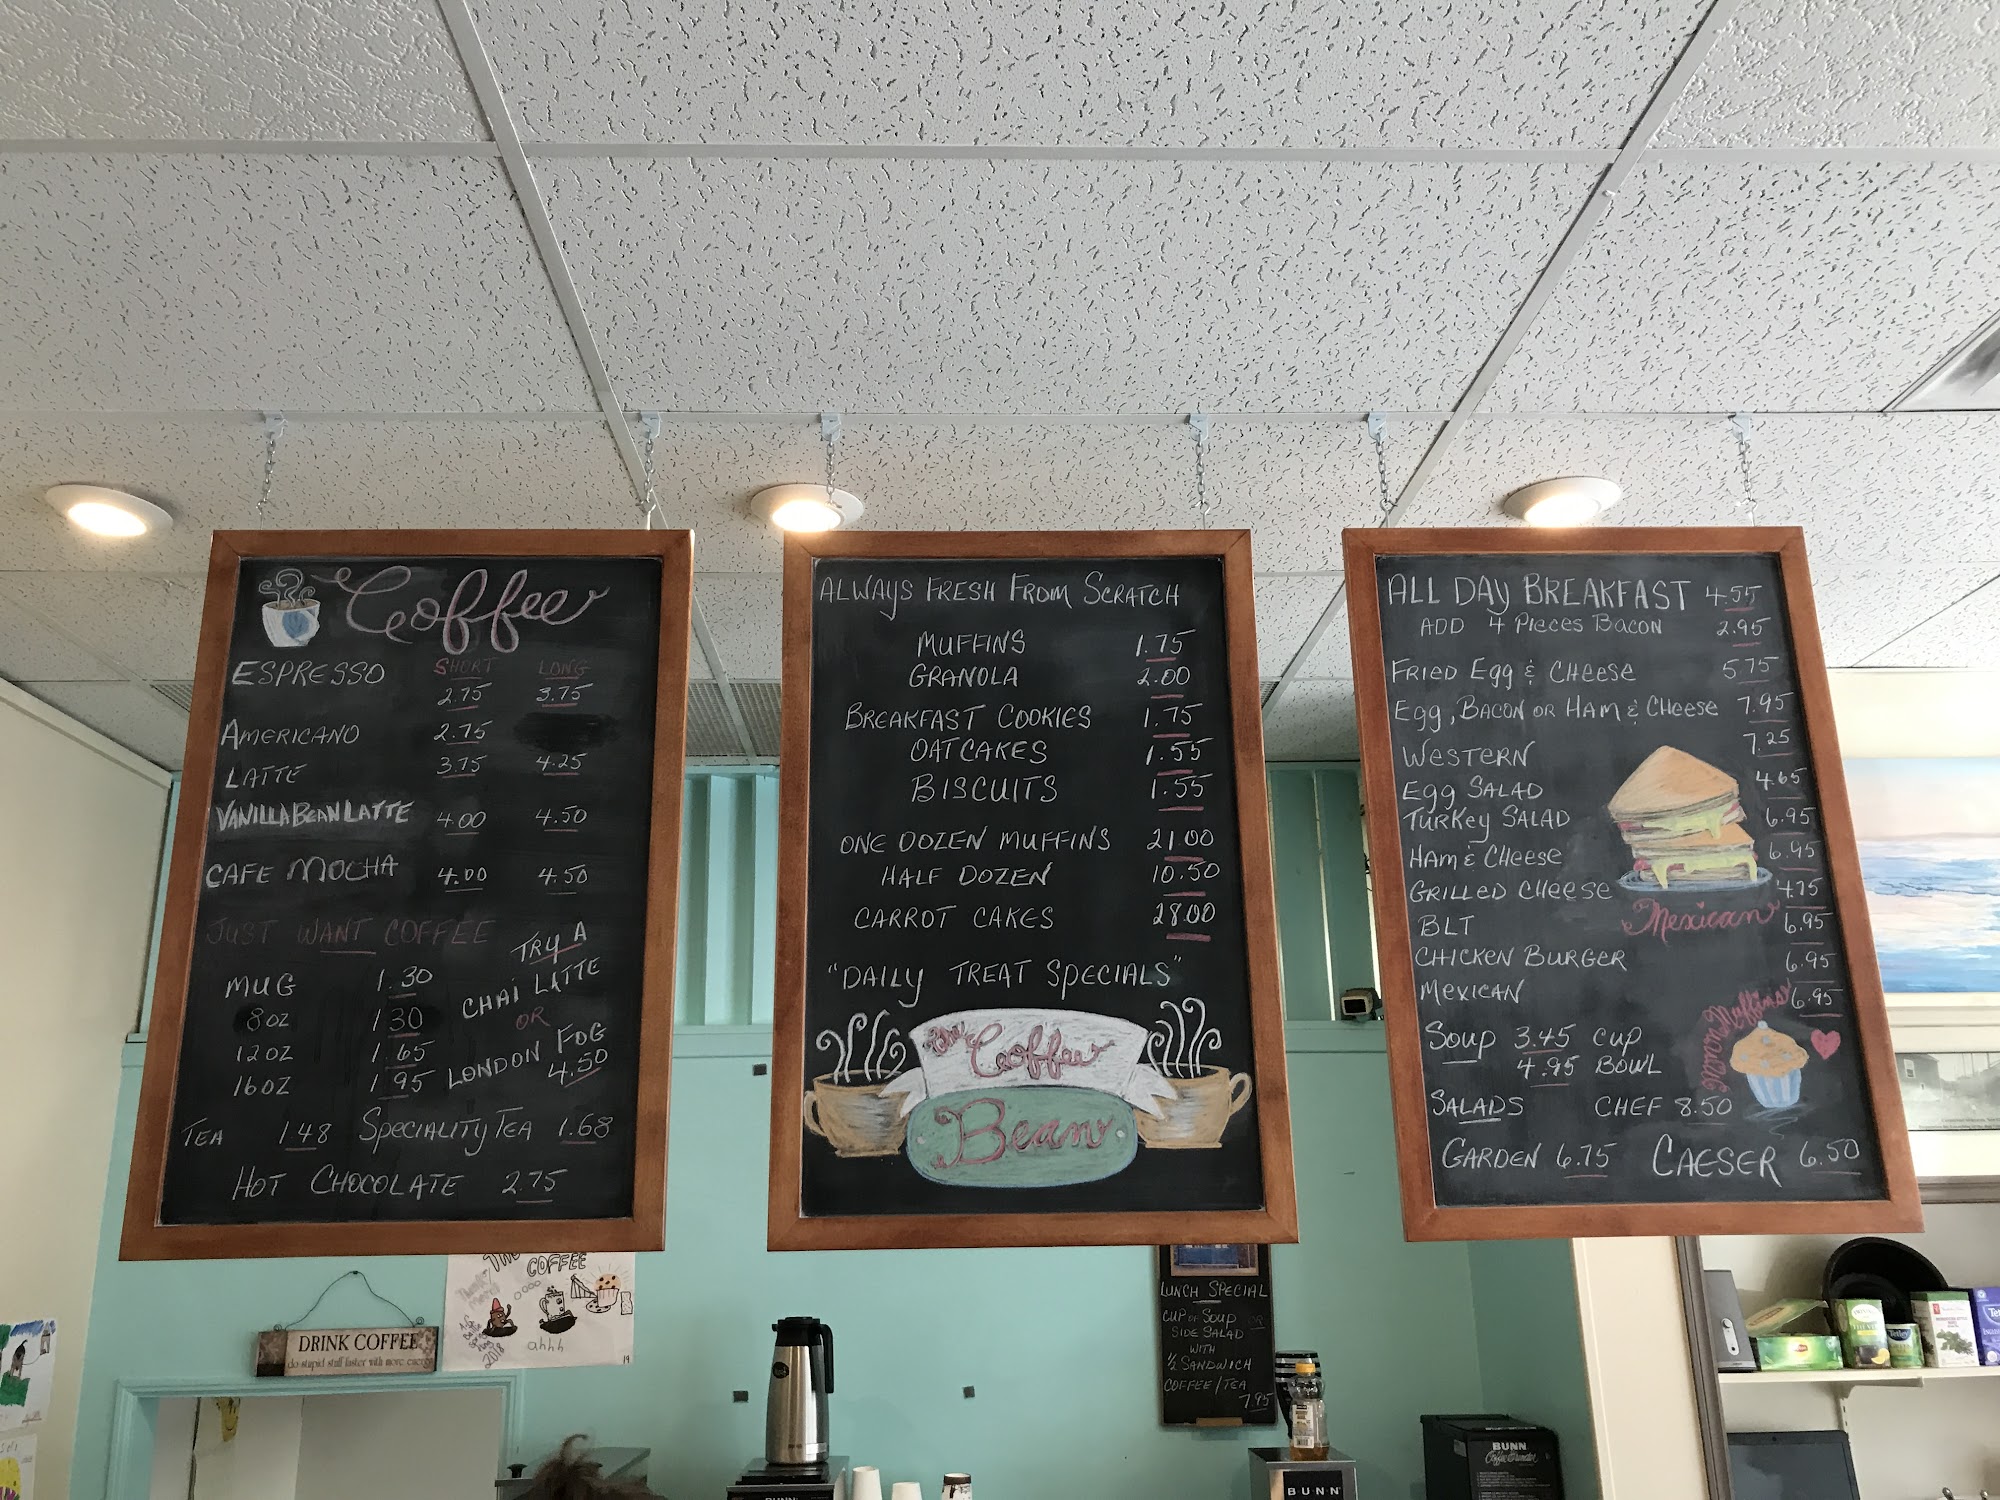 Coffee
ESPRESSO SHORT LONG
2.75 3.75
AMERICANO 2.75
LATTE 3.75 4.25
VANILLA BEAN LATTE 4.00 4.50
CAFE MOCHA 4.00 4.50
JUST WANT COFFEE
MUG 1.30
8 OZ 1 30
12 OZ 1.65
16 OZ 1.95
TRY A
CHAI LATTE
OR
LONDON FOG
4.50
TEA 148 SPECIALITY TEA 1.68
HOT CHOCOLATE 2.75
ALWAYS FRESH FROM SCRATCH
MUFFINS 1.75
GRANOLA 2.00
BREAKFAST COOKIES 1.75
OATCAKES 1.55
BISCUITS 1.55
ONE DOZEN MUFFINS 21.00
HALF DOZEN 10.50
CARROT CAKES 28.00
"DAILY TREAT SPECIALS"
The Coffee
Bean
ALL DAY BREAKFAST 4.55
ADD 4 PIECES BACON 2.95
FRIED Egg & CHeese 5.75
Egg, BACON OR HAM & CHeese 7.95
WESTERN 7.25
Egg SALAD 4.65
TURKey SALAD 6.95
HAM & CHeese 6.95
GRILLED CHeese 4.75
BLT 6.95
CHICKEN BURGER 6.95
MEXICAN 6.95
Mexican
SOUP 3.45 CUP
4.95 BOWL
SALADS CHEF 8.50
GARDEN 6.75 CAESER 6.50
DRINK COFFEE
do stupid stuff faster with more energy
COFFEE
ahhh
2018
19
LUNCH SPECIAL
CUP OF SOUP OR
SIDE SALAD
WITH
1/2 SANDWICH
COFFEE/TEA
7.95
BUNN
BUNN
Tetley